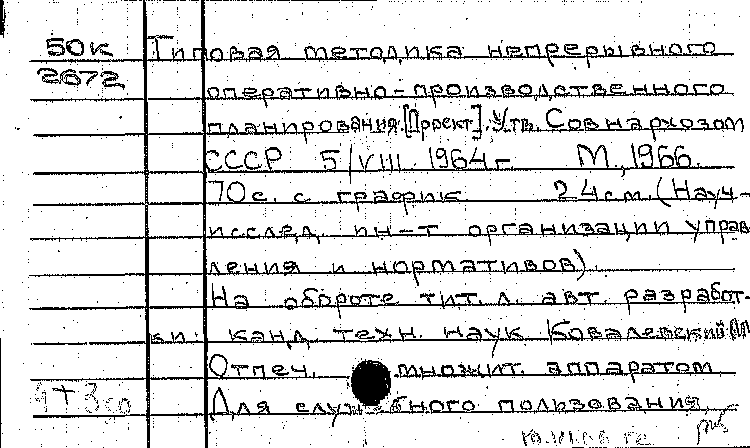 50к Типовая методика непрерывного
2672 оперативно-производственного
планирования.[Проект]. Утв. Совнархозом
СССР 5/VIII. 1964г. М., 1966.
70с. с график 24см. (Науч-
исслед. ин-т организации управ
ления и нормативов).
На обороте тит. л. авт. разработ-
ки: канд. техн. наук Ковалевский
Отпеч. множит. аппаратом.
Для служебного пользования.